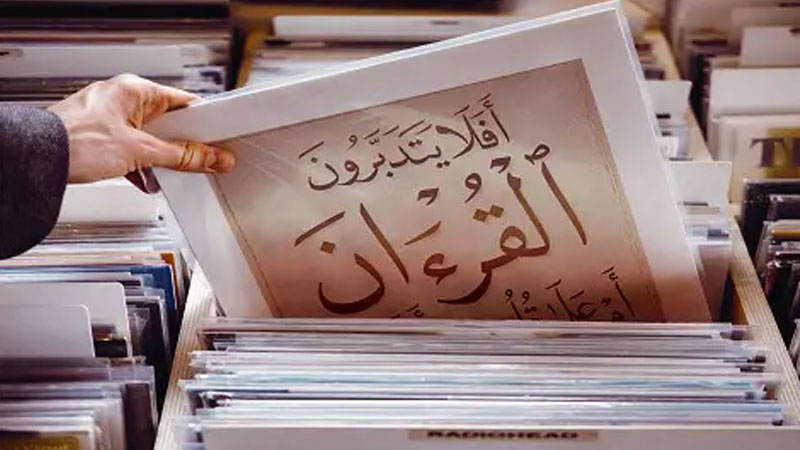 أَفَلَا يَتَدَبَّرُونَ
ٱلْقُرْءَانَ
أَمْ عَلَىٰ
RADIOHEAD